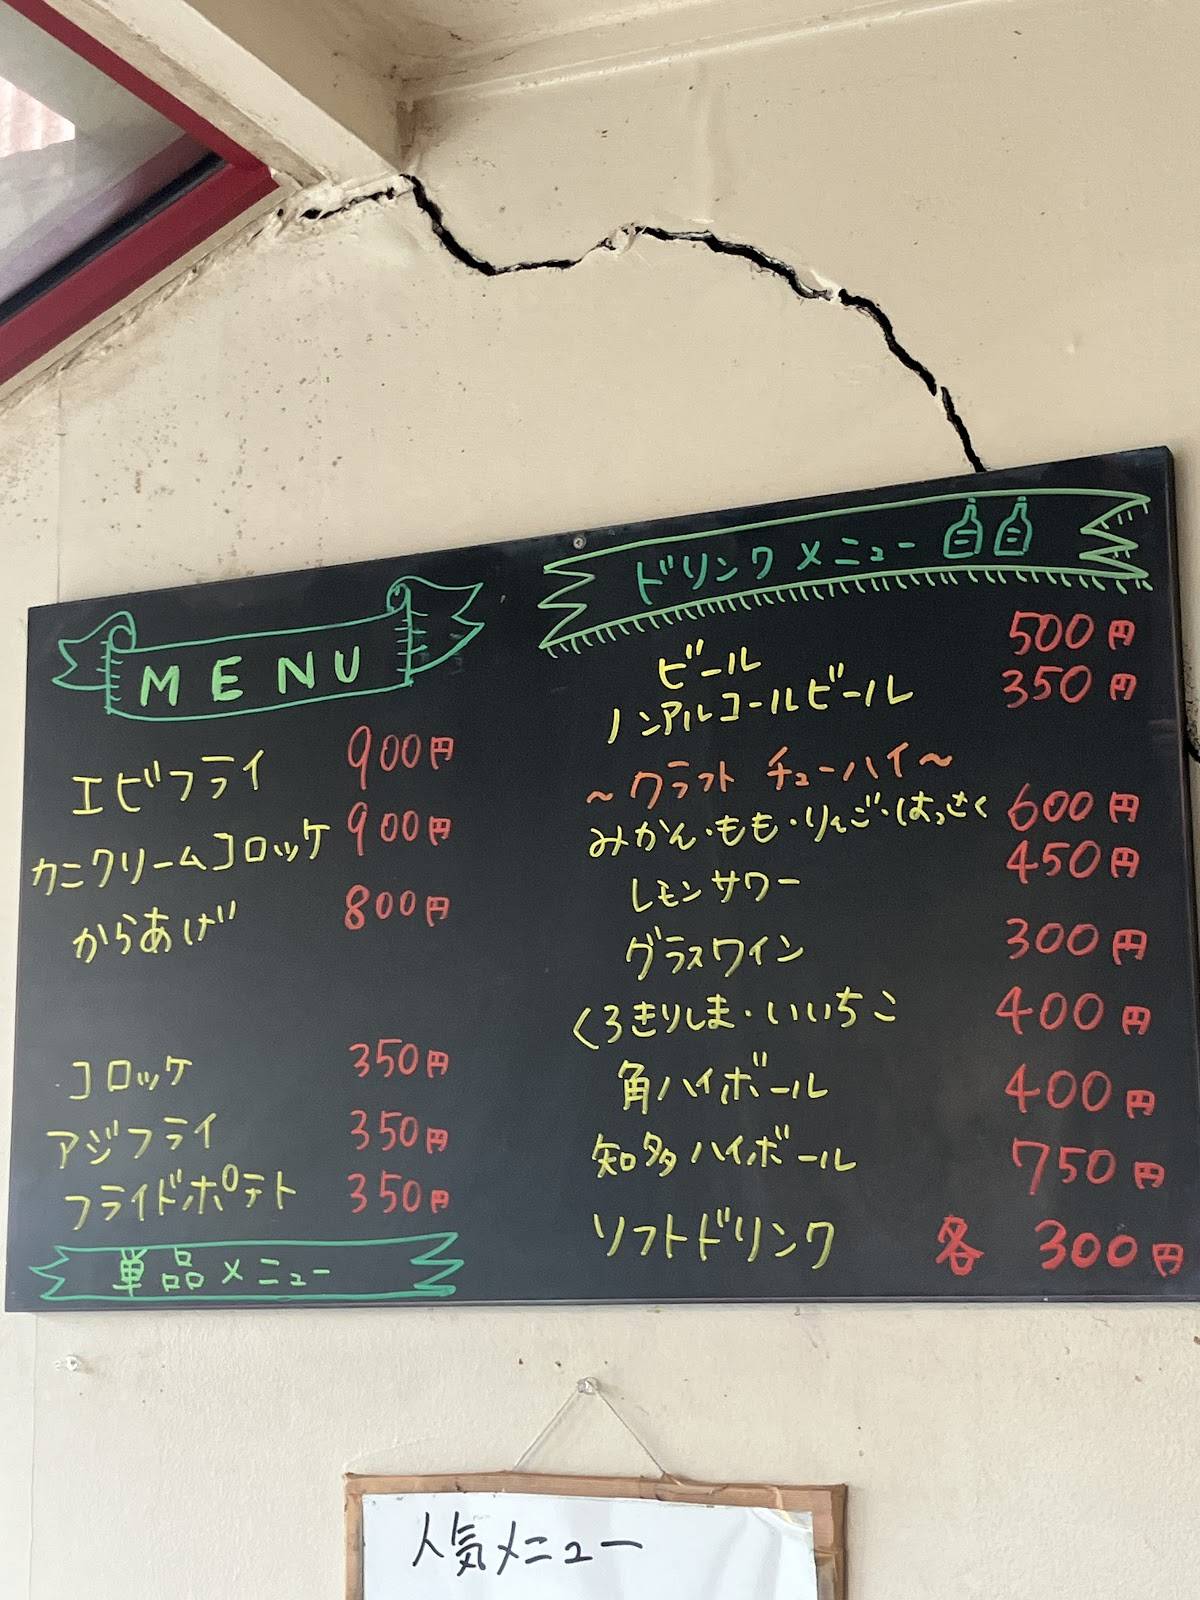 MENU
エビフライ 900円
カニクリームコロッケ 900円
からあげ 800円
コロッケ 350円
アジフライ 350円
フライドポテト 350円
単品メニュー
ドリンクメニュー
ビール 500円
ノンアルコールビール 350円
～クラフト チューハイ～
みかん・もも・りんご・はっさく 600円
レモンサワー 450円
グラスワイン 300円
くろきりしま・いいちこ 400円
角ハイボール 400円
知多ハイボール 750円
ソフトドリンク 各 300円
人気メニュー